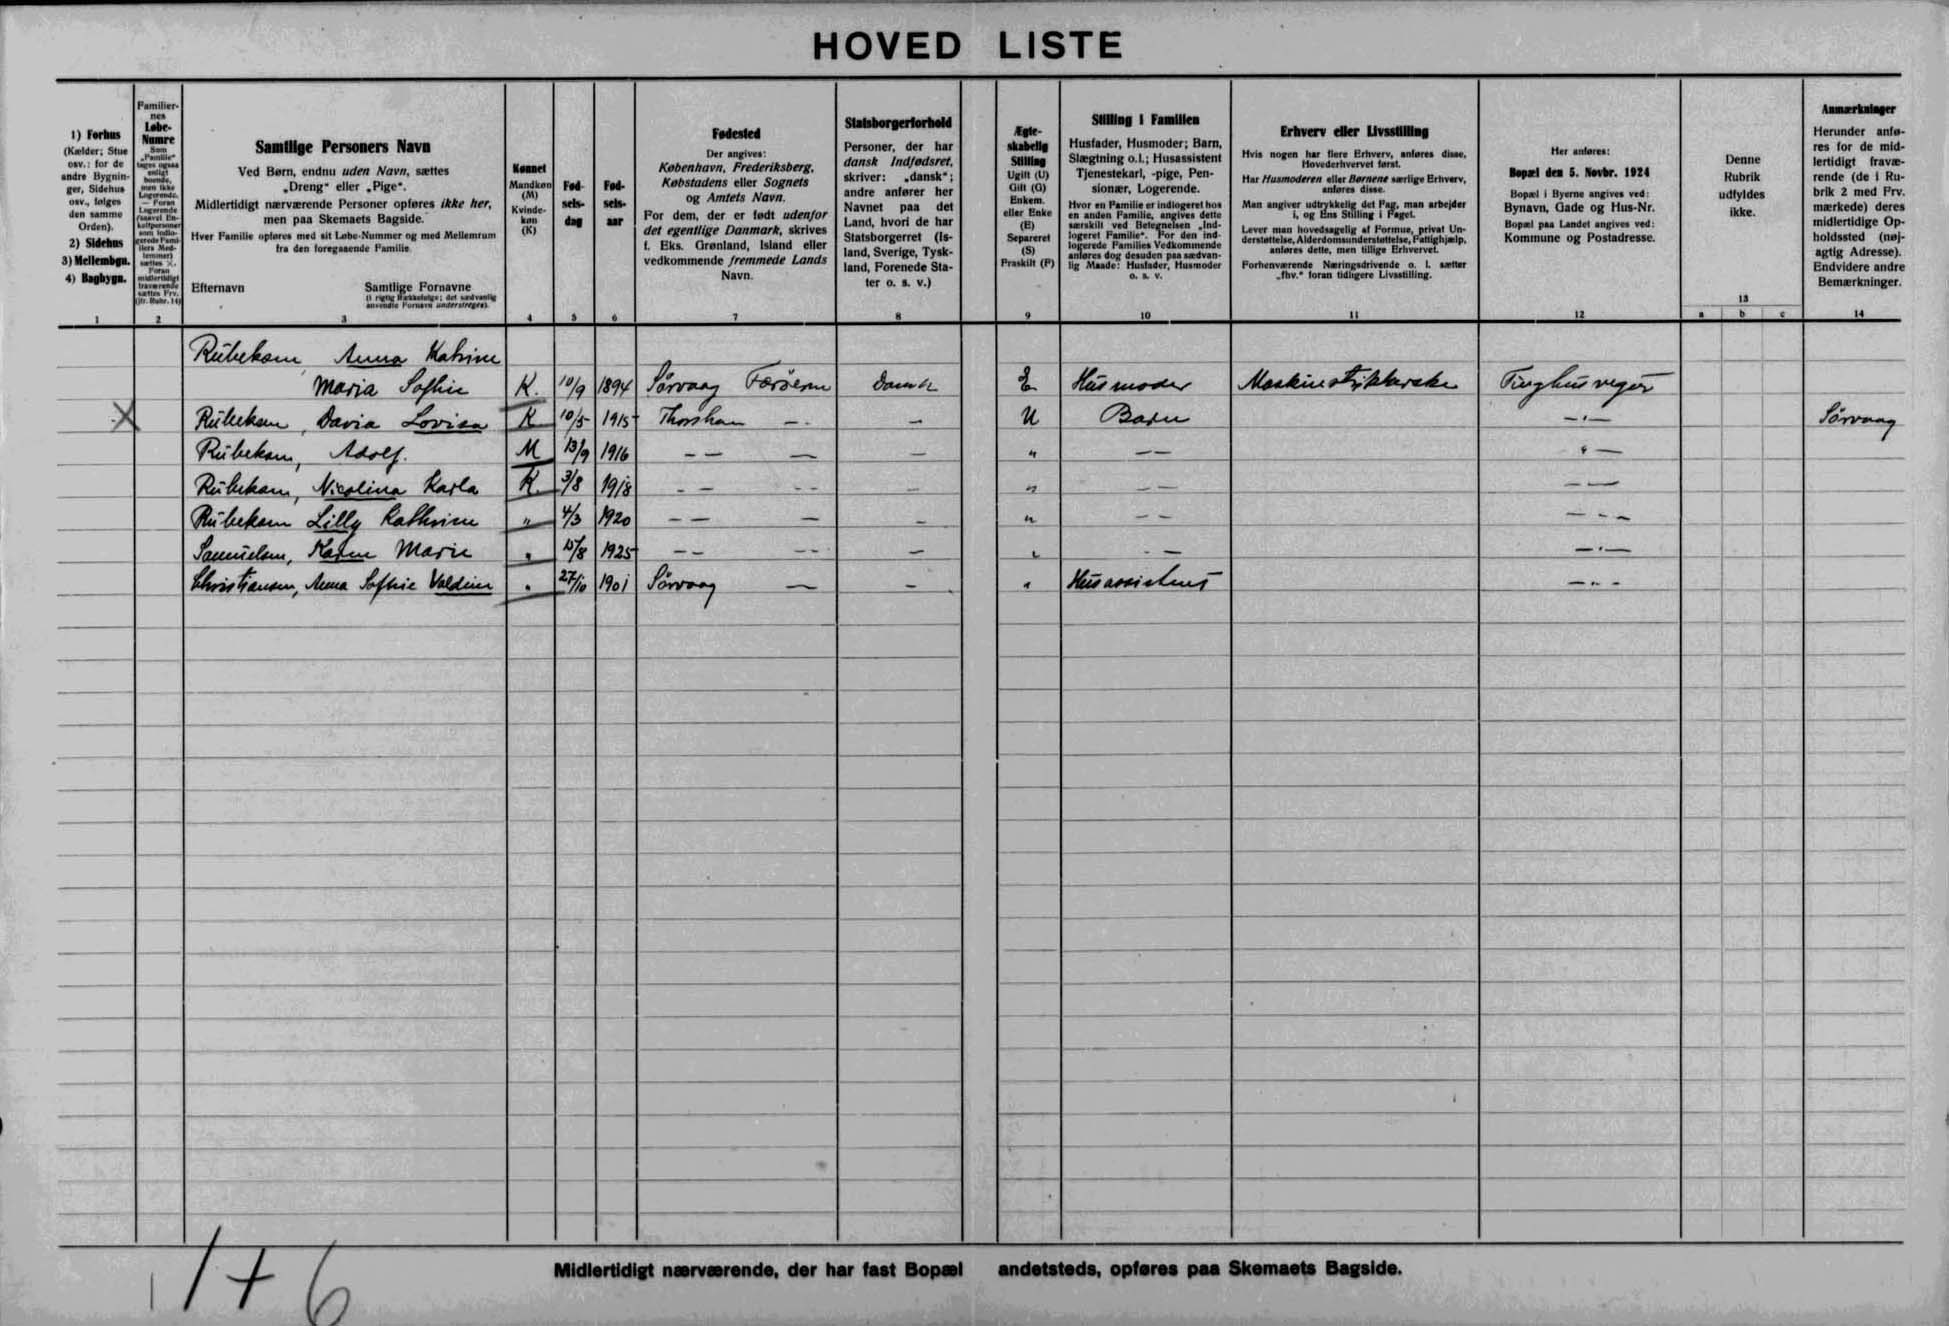 HOVED LISTE
1) Forhus
(Kælder; Stue
osv.: for de
andre Bygnin-
ger, Sidehus
osv., følges
den samme
Orden).
2) Sidehus
3) Mellembgn.
4) Bagbygn.
1
Familier-
nes
Løbe-
Numre
Som
„Familie“
tages ogsaa
enligt
boende,
men ikke
Logerende.
— Foran
Logerende
2
Samtlige Personers Navn
Ved Børn, endnu uden Navn, sættes
„Dreng“ eller „Pige“.
Midlertidigt nærværende Personer opføres ikke her,
men paa Skemaets Bagside.
Hver Familie opføres med sit Løbe-Nummer og med Mellemrum
fra den foregaaende Familie.
Efternavn Samtlige Fornavne
(i rigtig Rækkefølge; det sædvanlig
anvendte Fornavn understreges).
3
Kønnet
Mandkøn
(M)
Kvinde-
køn
(K)
4
Fød-
sels-
dag
5
Fød-
sels-
aar
6
Fødested
Der angives:
København, Frederiksberg,
Købstadens eller Sognets
og Amtets Navn.
For dem, der er født udenfor
det egentlige Danmark, skrives
f. Eks. Grønland, Island eller
vedkommende fremmede Lands
Navn.
7
Statsborgerforhold
Personer, der har
dansk Indfødsret,
skriver: „dansk“;
andre anfører her
Navnet paa det
Land, hvori de har
Statsborgerret (Is-
land, Sverige, Tysk-
land, Forenede Sta-
ter o. s. v.)
8
Ægte-
skabelig
Stilling
Ugift (U)
Gift (G)
Enkem.
eller Enke
(E)
Separeret
(S)
Fraskilt (F)
9
Stilling i Familien
Husfader, Husmoder; Barn,
Slægtning o.l.; Husassistent
Tjenestekarl, -pige, Pen-
sionær, Logerende.
Hvor en Familie er indlogeret hos
en anden Familie, angives dette
særskilt ved Betegnelsen „Ind-
logeret Familie“. For den ind-
logerede Families Vedkommende
anføres dog desuden paa sædvan-
lig Maade: Husfader, Husmoder
o. s. v.
10
Erhverv eller Livsstilling
Hvis nogen har flere Erhverv, anføres disse,
Hovederhvervet først.
Har Husmoderen eller Børnene særlige Erhverv,
anføres disse.
Man angiver udtrykkelig det Fag, man arbejder
i, og Ens Stilling i Faget.
Lever man hovedsagelig af Formue, privat Un-
derstøttelse, Alderdomsunderstøttelse, Fattighjælp,
anføres dette, men tillige Erhvervet.
Forhenværende Næringsdrivende o. l. sætter
„fhv.“ foran tidligere Livsstilling.
11
Her anføres:
Bopæl den 5. Novbr. 1924
Bopæl i Byerne angives ved:
Bynavn, Gade og Hus-Nr.
Bopæl paa Landet angives ved:
Kommune og Postadresse.
12
Denne
Rubrik
udfyldes
ikke.
13
a b c
Anmærkninger
Herunder anfø-
res for de mid-
lertidigt fravæ-
rende (de i Ru-
brik 2 med Frv.
mærkede) deres
midlertidige Op-
holdssted (nøj-
agtig Adresse).
Endvidere andre
Bemærkninger.
14
Rubeksen Anna Katrine
Maria Sofhie K. 10/9 1894 Sörvaag Færöerne Dansk E Husmoder Maskinstrikkerske Tinghusvegur
X Rubeksen, Davia Lovisa K 10/5 1915 Thorshavn — - — U Barn —„— Sörvaag
Rubeksen, Adolf. M 13/9 1916 — — — — „ — — „ —
Rubeksen, Nicolina Karla K. 3/8 1918 — — — — — „ — — — —
Rubeksen Lilly Kathrine „ 4/3 1920 — — — — „ — — — „ —
Samuelsen, Karen Marie „ 15/8 1925 — — — — — „ — — —„—
Christiansen, Anna Sofhie Valdine „ 27/10 1901 Sörvaag — — „ Husassistent —„—
1+6
Midlertidigt nærværende, der har fast Bopæl andetsteds, opføres paa Skemaets Bagside.